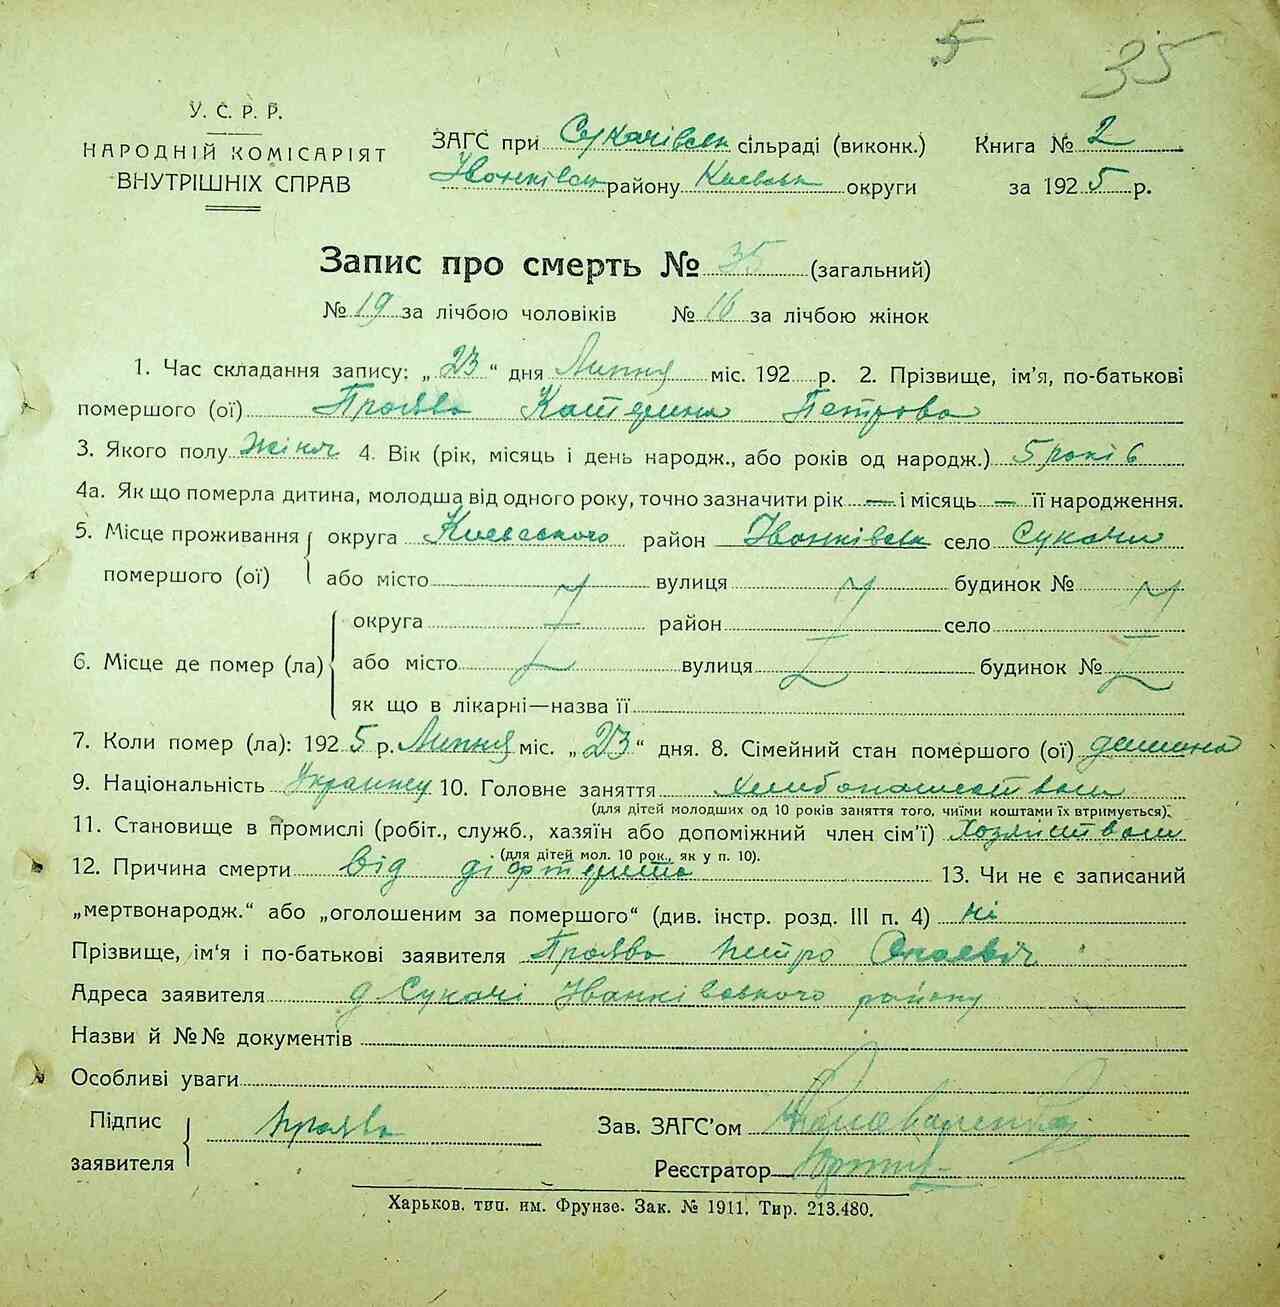 5 35
У. С. Р. Р.
НАРОДНІЙ КОМІСАРІЯТ
ВНУТРІШНІХ СПРАВ
ЗАГС при Сукачівськ сільраді (виконк.)
Іванківськ району Киевськ округи
Книга № 2
за 1925 р.
Запис про смерть № 35 (загальний)
№ 19 за лічбою чоловіків № 16 за лічбою жінок
1. Час складання запису: „23“ дня Липня міс. 192 р. 2. Прізвище, ім’я, по-батькові
помершого (ої) Проява Катерина Петрова
3. Якого полу Жіноч 4. Вік (рік, місяць і день народж., або років од народж.) 5 років
4а. Як що померла дитина, молодша від одного року, точно зазначити рік — і місяць — її народження.
5. Місце проживання округа Киевського район Іванківськ село Сукачи
помершого (ої) або місто вулиця будинок №
округа район село
6. Місце де помер (ла) або місто вулиця будинок №
як що в лікарні—назва її
7. Коли помер (ла): 1925 р. Липня міс. „23“ дня. 8. Сімейний стан помершого (ої) дитина
9. Національність 10. Головне заняття
(для дітей молодших од 10 років заняття того, чиїми коштами їх втримується).
11. Становище в промислі (робіт., служб., хазяїн або допоміжний член сім’ї)
(для дітей мол. 10 рок., як у п. 10).
12. Причина смерти від 13. Чи не є записаний
„мертвонародж.“ або „оголошеним за помершого“ (див. інстр. розд. III п. 4) ні
Прізвище, ім’я і по-батькові заявителя Проява Петро
Адреса заявителя с Сукачі Іванківського району
Назви й №№ документів
Особливі уваги
Підпис
заявителя Проява
Зав. ЗАГС’ом
Реєстратор
Харьков. тип. им. Фрунзе. Зак. № 1911. Тир. 213.480.